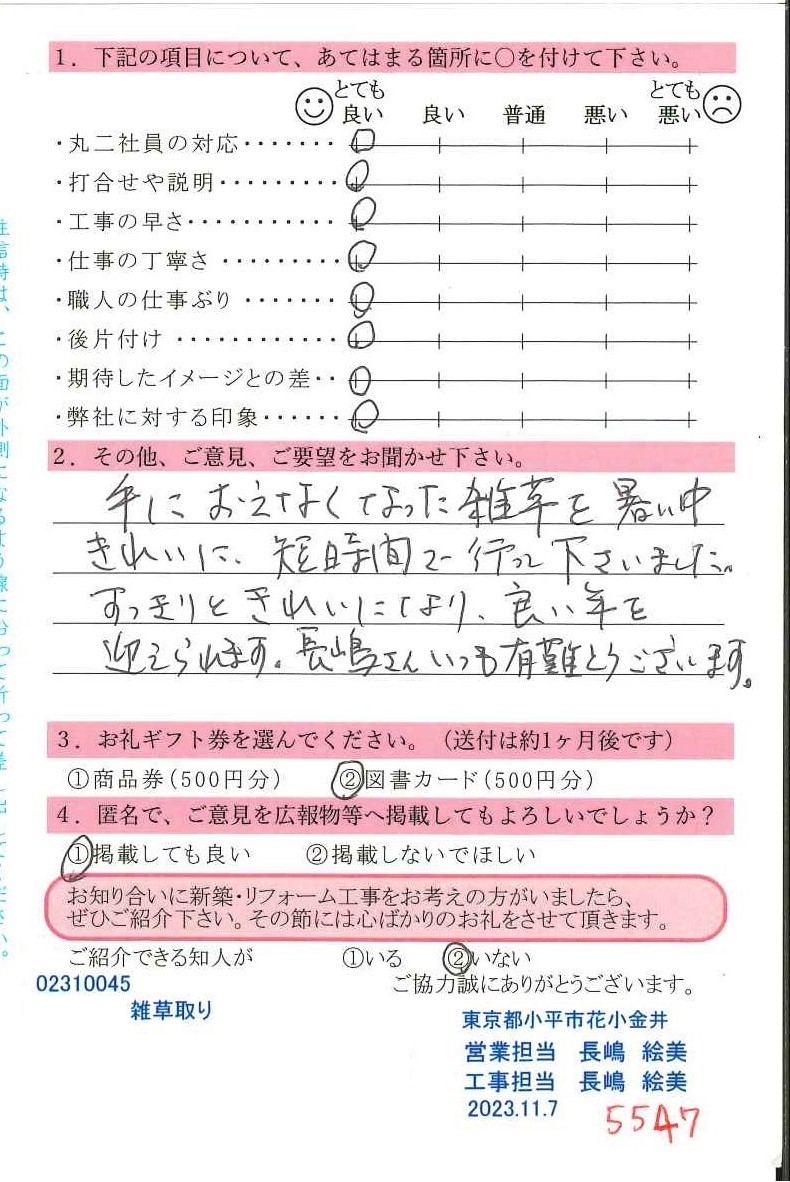 1．下記の項目について、あてはまる箇所に○を付けて下さい。
とても良い 良い 普通 悪い とても悪い
・丸二社員の対応・・・・・・・
・打合せや説明・・・・・・・・・
・工事の早さ・・・・・・・・・・・
・仕事の丁寧さ・・・・・・・・・
・職人の仕事ぶり・・・・・・・
・後片付け・・・・・・・・・・・・
・期待したイメージとの差・・
・弊社に対する印象・・・・・・
2．その他、ご意見、ご要望をお聞かせ下さい。
手におえなくなった雑草を暑い中
きれいに、短時間で行って下さいました。
すっきりときれいになり、良い年を
迎えられます。長嶋さんいつも有難とうございます。
3．お礼ギフト券を選んでください。（送付は約1ヶ月後です）
①商品券（500円分） ②図書カード（500円分）
4．匿名で、ご意見を広報物等へ掲載してもよろしいでしょうか？
①掲載しても良い ②掲載しないでほしい
お知り合いに新築・リフォーム工事をお考えの方がいましたら、
ぜひご紹介下さい。その節には心ばかりのお礼をさせて頂きます。
ご紹介できる知人が ①いる ②いない
ご協力誠にありがとうございます。
02310045
雑草取り
東京都小平市花小金井
営業担当 長嶋 絵美
工事担当 長嶋 絵美
2023.11.7
5547